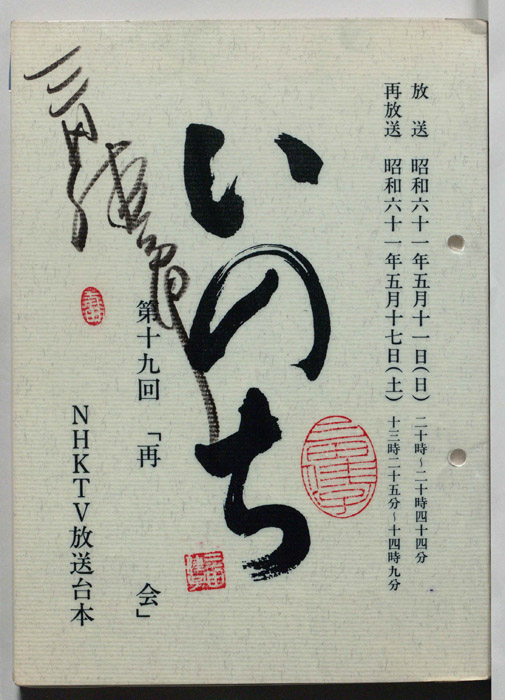 放送 昭和六十一年五月十一日(日) 二十時~二十時四十四分
再放送 昭和六十一年五月十七日(土) 十三時二十五分~十四時九分
いのち
第十九回 「再会」
NHKTV放送台本